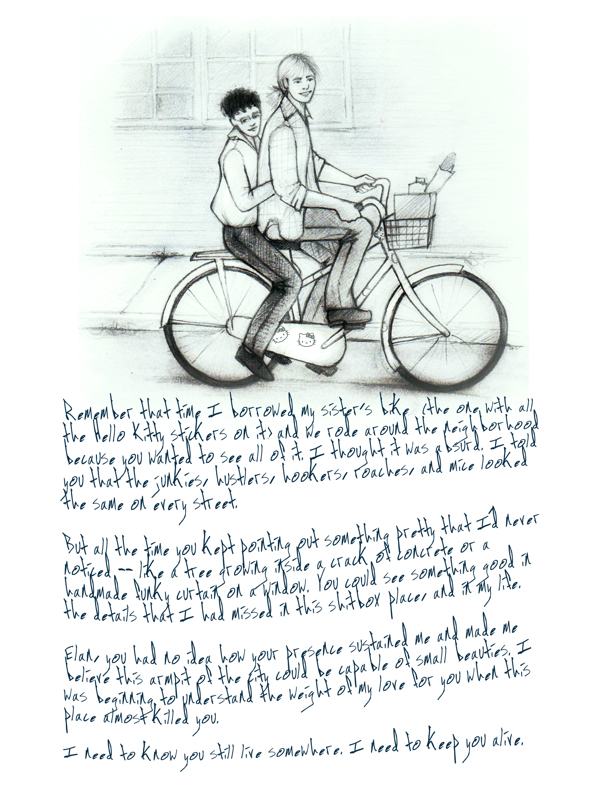 Remember that time I borrowed my sister's bike (the one with all
the Hello Kitty stickers on it) and we rode around the neighborhood
because you wanted to see all of it. I thought it was absurd. I told
you that the junkies, hustlers, hookers, roaches, and mice looked
the same on every street.
But all the time you kept pointing out something pretty that I'd never
noticed -- like a tree growing inside a crack of concrete or a
handmade funky curtain on a window. You could see something good in
the details that I had missed in this shitbox place, and in my life.
Elan, you had no idea how your presence sustained me and made me
believe this armpit of the city could be capable of small beauties. I
was beginning to understand the weight of my love for you when this
place almost killed you.
I need to know you still live somewhere. I need to keep you alive.